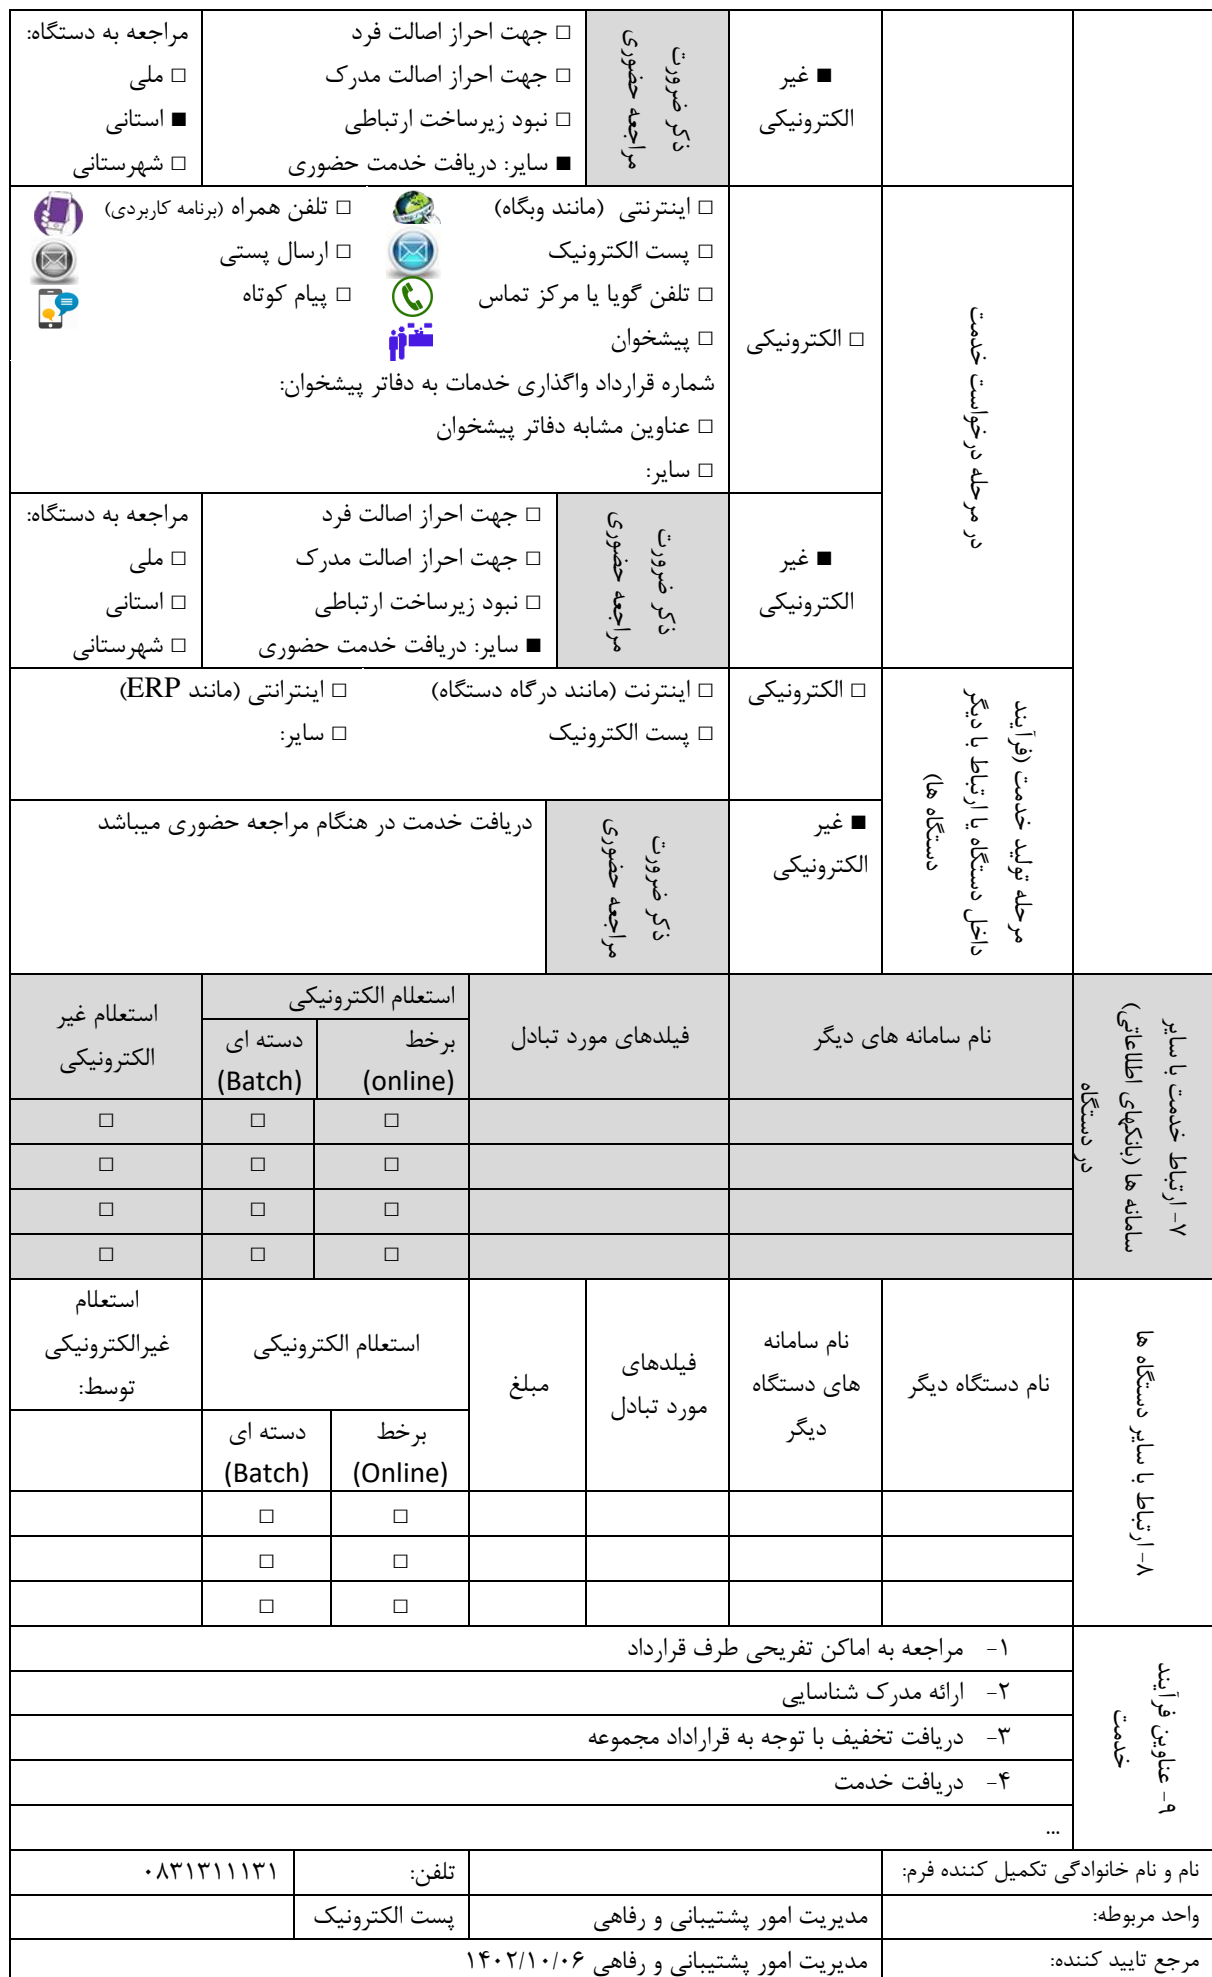 ■ غیر
الکترونیکی
ذکر ضرورت
مراجعه حضوری
□ جهت احراز اصالت فرد
□ جهت احراز اصالت مدرک
□ نبود زیرساخت ارتباطی
■ سایر: دریافت خدمت حضوری
مراجعه به دستگاه:
□ ملی
■ استانی
□ شهرستانی
در مرحله درخواست خدمت
□ الکترونیکی
□ اینترنتی (مانند وبگاه) □ تلفن همراه (برنامه کاربردی)
□ پست الکترونیک □ ارسال پستی
□ تلفن گویا یا مرکز تماس □ پیام کوتاه
□ پیشخوان
شماره قرارداد واگذاری خدمات به دفاتر پیشخوان:
□ عناوین مشابه دفاتر پیشخوان
□ سایر:
■ غیر
الکترونیکی
ذکر ضرورت
مراجعه حضوری
□ جهت احراز اصالت فرد
□ جهت احراز اصالت مدرک
□ نبود زیرساخت ارتباطی
■ سایر: دریافت خدمت حضوری
مراجعه به دستگاه:
□ ملی
□ استانی
□ شهرستانی
مرحله تولید خدمت (فرآیند
داخل دستگاه یا ارتباط با دیگر
دستگاه ها)
□ الکترونیکی
□ اینترنت (مانند درگاه دستگاه) □ اینترانتی (مانند ERP)
□ پست الکترونیک □ سایر:
■ غیر
الکترونیکی
ذکر ضرورت
مراجعه حضوری
دریافت خدمت در هنگام مراجعه حضوری میباشد
۷- ارتباط خدمت با سایر
سامانه ها (بانکهای اطلاعاتی)
در دستگاه
نام سامانه های دیگر
فیلدهای مورد تبادل
استعلام الکترونیکی
برخط
(online)
دسته ای
(Batch)
استعلام غیر
الکترونیکی
□ □ □
□ □ □
□ □ □
□ □ □
۸- ارتباط با سایر دستگاه ها
نام دستگاه دیگر
نام سامانه
های دستگاه
دیگر
فیلدهای
مورد تبادل
مبلغ
استعلام الکترونیکی
برخط
(Online)
دسته ای
(Batch)
استعلام
غیرالکترونیکی
توسط:
□ □
□ □
□ □
۹- عناوین فرآیند
خدمت
۱- مراجعه به اماکن تفریحی طرف قرارداد
۲- ارائه مدرک شناسایی
۳- دریافت تخفیف با توجه به قراراداد مجموعه
۴- دریافت خدمت
...
نام و نام خانوادگی تکمیل کننده فرم: تلفن: ۰۸۳۱۳۱۱۱۳۱
واحد مربوطه: مدیریت امور پشتیبانی و رفاهی پست الکترونیک
مرجع تایید کننده: مدیریت امور پشتیبانی و رفاهی ۱۴۰۲/۱۰/۰۶